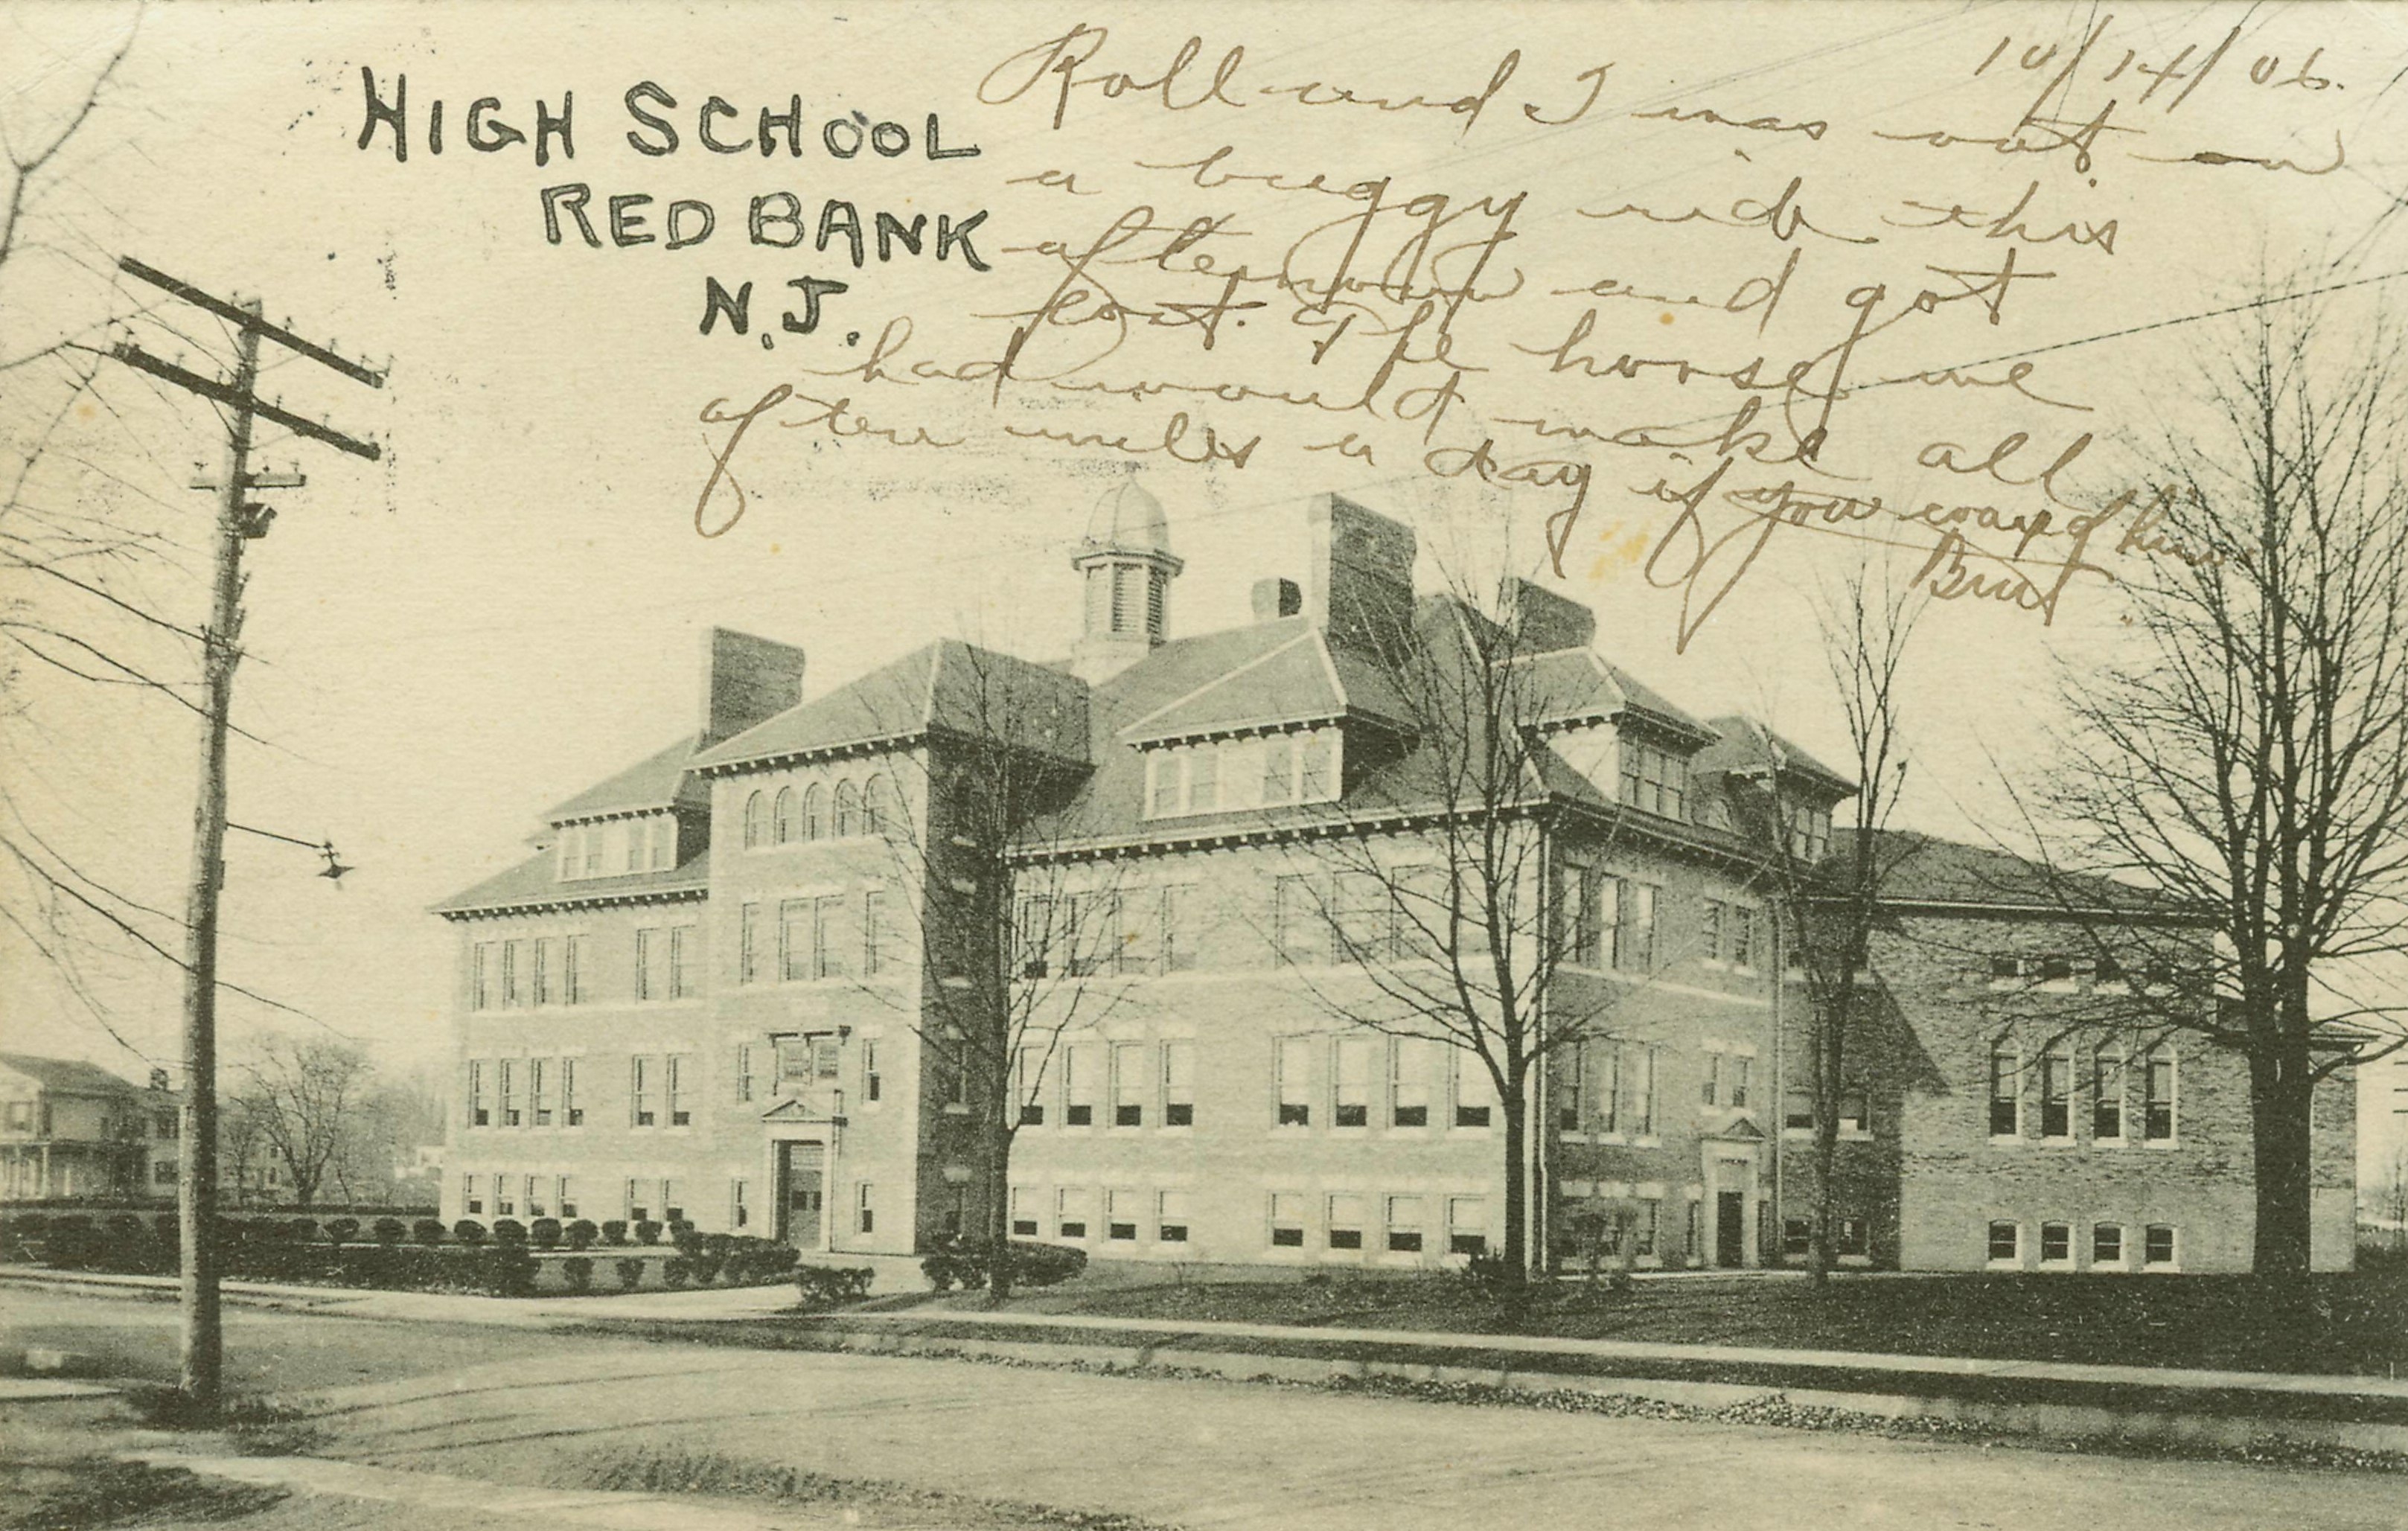 HIGH SCHOOL
RED BANK
N.J.
10/14/06.
Roll and I was out on
a buggy ride this
afternoon and got
lost. The horse we
had would make all
of ten miles a day if you coaxed him